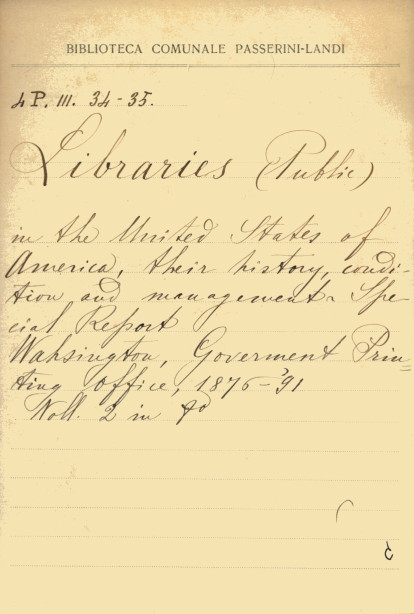 BIBLIOTECA COMUNALE PASSERINI-LANDI
4 P. III. 34-35.
Libraries (Public)
in the United States of
America, their history, condi-
tion and management. Spe-
cial Report
Wahsington, Goverment Prin=
ting Office, 1876-'91
Voll. 2 in 8º
C